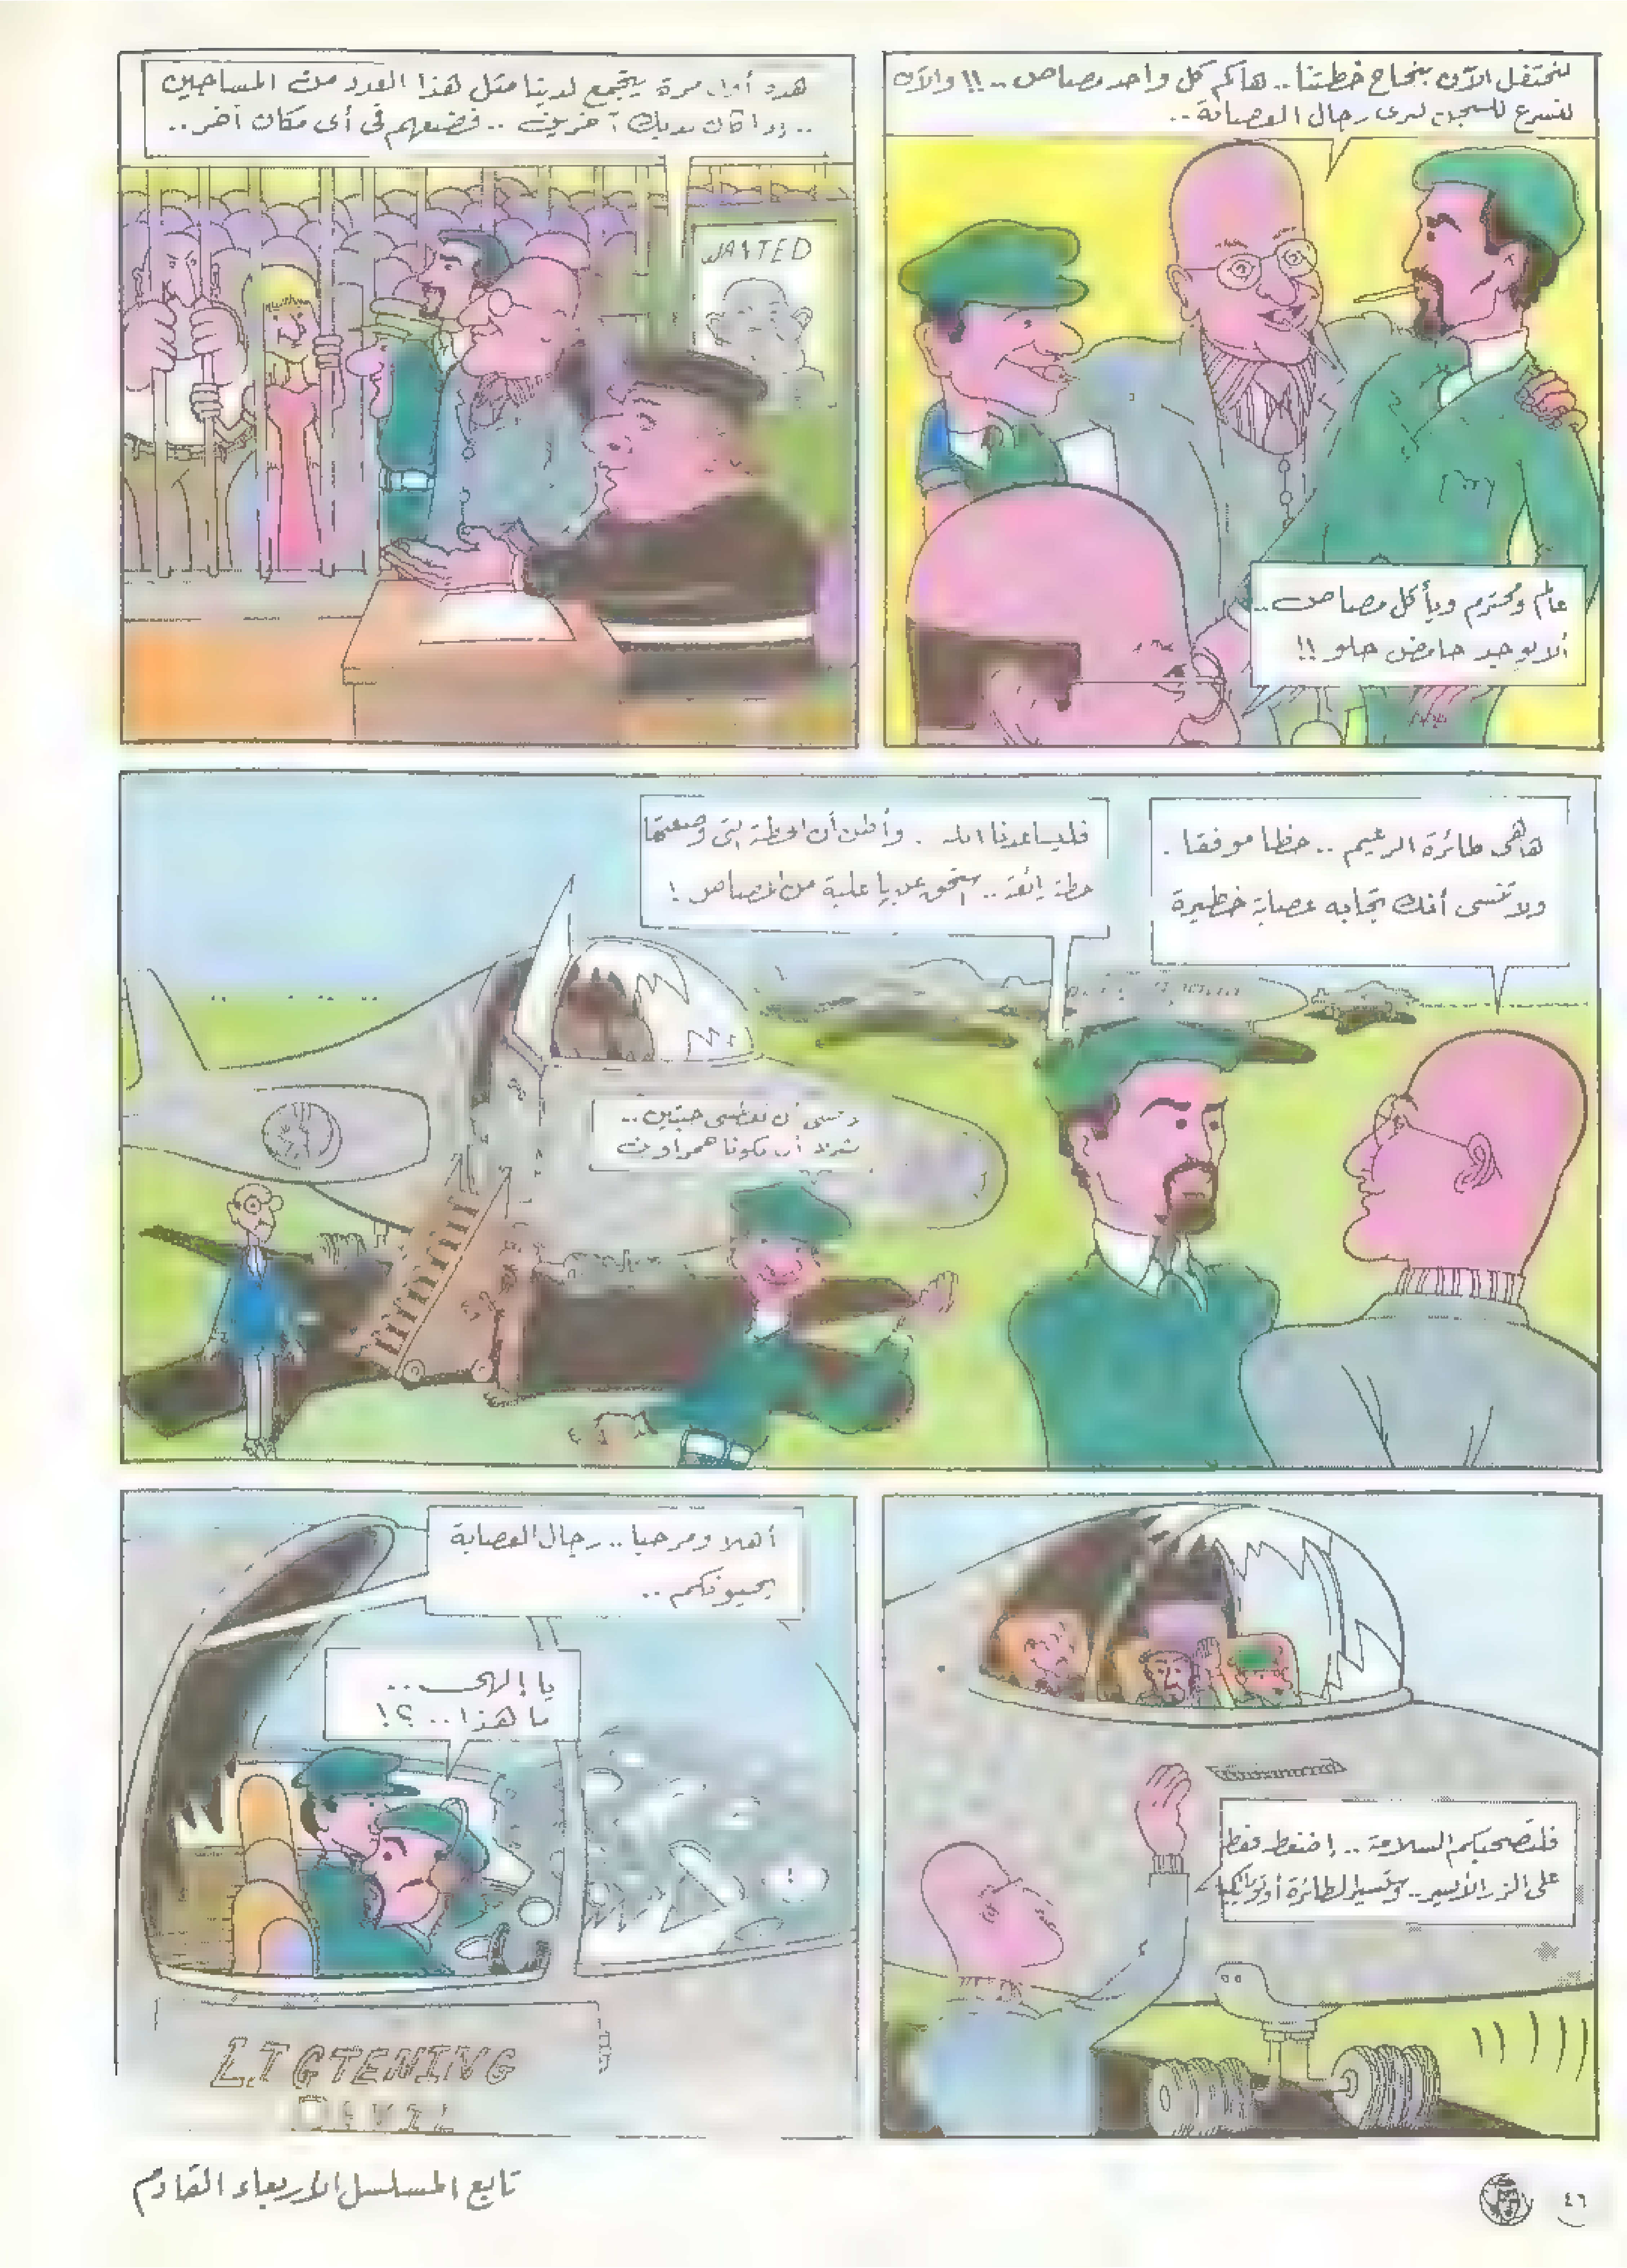 لنحتفل الآن بنجاح خطتنا.. هاكم كل واحد مصاص..!! والآن
لنسرع للسجن لنرى رجال العصابة..
عالم ومحترم ويأكل مصاص..
ألا يوجد حامض حلو !!
هذه أول مرة يتجمع لدينا مثل هذا العدد من المساجين
.. إذا كان لديك آخرين .. فضعهم في أى مكان آخر..
WANTED
هاهى طائرة الزعيم .. حظا موفقا .
ولا تنسى أنك تجابه عصابة خطيرة
فليساعدنا الله . وأظن أن الخطة التى وضعتها
خطة رائعة .. تستحق عليها علبة من المصاص !
أن تعطسى حبتين ..
أن تكونا حمراوين
فلتصحبكم السلامة .. إضغط فقط
على الزر الأيسر.. وستسير الطائرة أوتوماتيكيا
أهلا ومرحبا .. رجال العصابة
يحيونكم ..
يا إلهى ..
ما هذا ..؟!
LIGTENING
تابع المسلسل الأربعاء القادم
٤٦